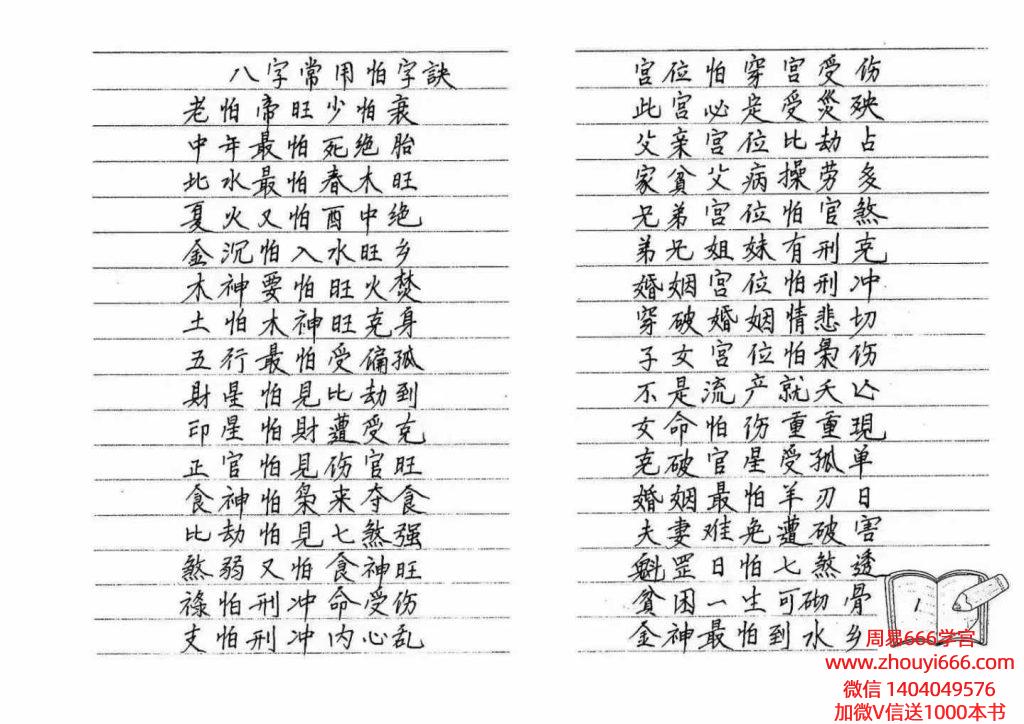 八字常用怕字訣
老怕帝旺少怕衰
中年最怕死绝胎
北水最怕春木旺
夏火又怕酉中绝
金沉怕入水旺乡
木神要怕旺火焚
土怕木神旺克身
五行最怕受偏孤
財星怕見比劫到
印星怕財遭受克
正官怕見伤官旺
食神怕枭来夺食
比劫怕見七煞强
煞弱又怕食神旺
祿怕刑冲命受伤
支怕刑冲内心乱
宫位怕穿宫受伤
此宫必定受災殃
父亲宫位比劫占
家貧父病操劳多
兄弟宫位怕官煞
弟兄姐妹有刑克
婚姻宫位怕刑冲
穿破婚姻情悲切
子女宫位怕枭伤
不是流产就夭亡
女命怕伤重重現
克破官星受孤单
婚姻最怕羊刃日
夫妻难免遭破害
魁罡日怕七煞透
貧困一生可砌骨
金神最怕到水乡
1
周易666学宫
www.zhouyi666.com
微信 1404049576
加微V信送1000本书